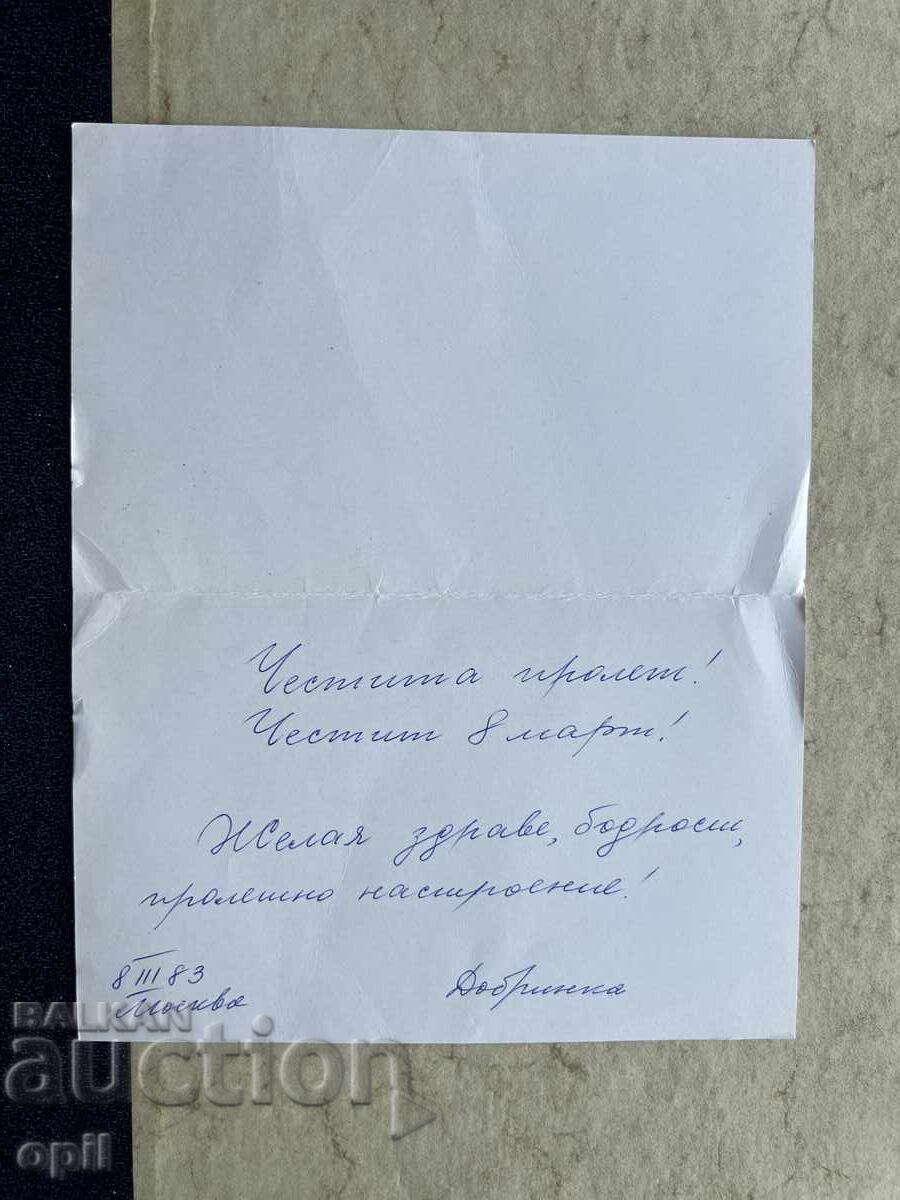 Честита пролет!
Честит 8 март!
Желая здраве, бодрост,
пролетно настроение!
8 III 83
Москва
Добринка
BALKAN
auction
opil